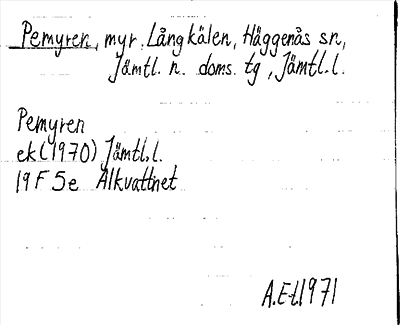 Pemyren, myr, Långkälen, Häggenås sn,
Jämtl. n. doms. tg, Jämtl. l.
Pemyren
ek (1970) Jämtl. l.
19 F 5 e Alkvattnet
A.Et 1971